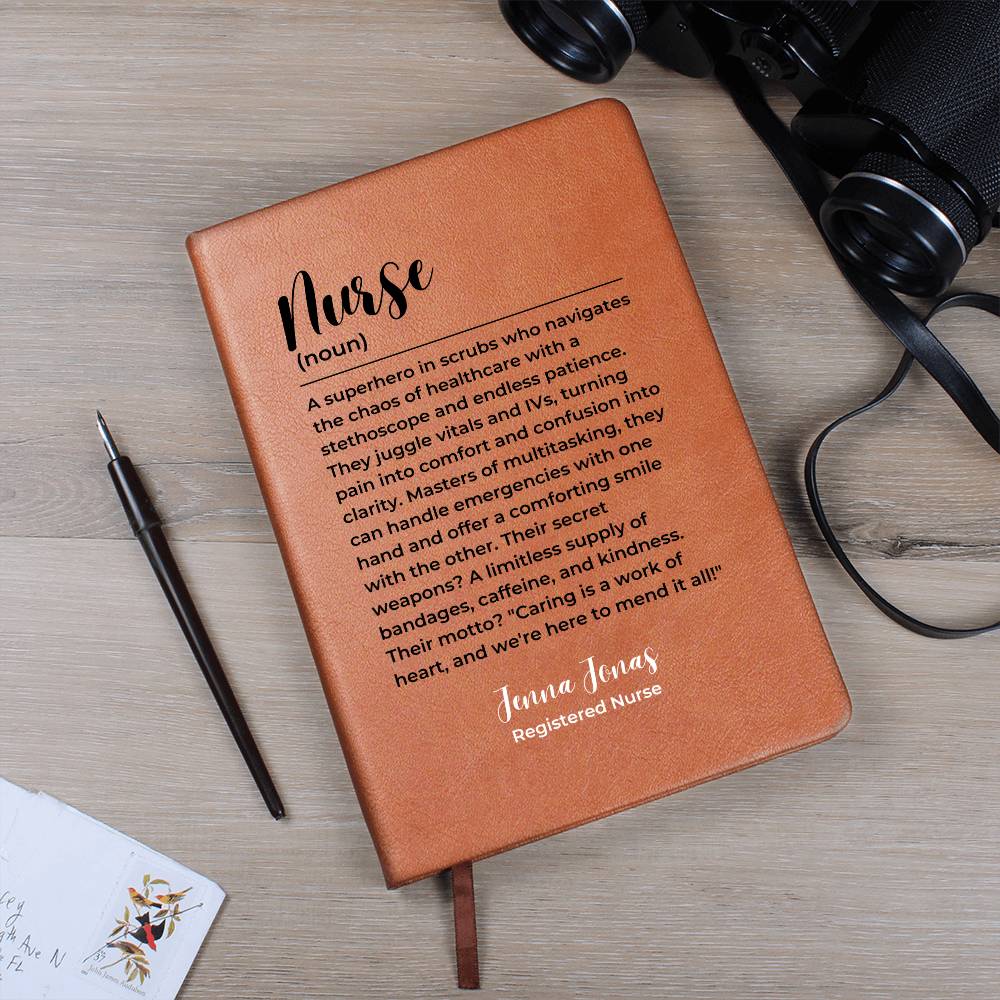 Nurse
(noun)
A superhero in scrubs who navigates
the chaos of healthcare with a
stethoscope and endless patience.
They juggle vitals and IVs, turning
pain into comfort and confusion into
clarity. Masters of multitasking, they
can handle emergencies with one
hand and offer a comforting smile
with the other. Their secret
weapons? A limitless supply of
bandages, caffeine, and kindness.
Their motto? "Caring is a work of
heart, and we're here to mend it all!"
Jenna Jonas
Registered Nurse
Ave N
FL
37
John James Audubon